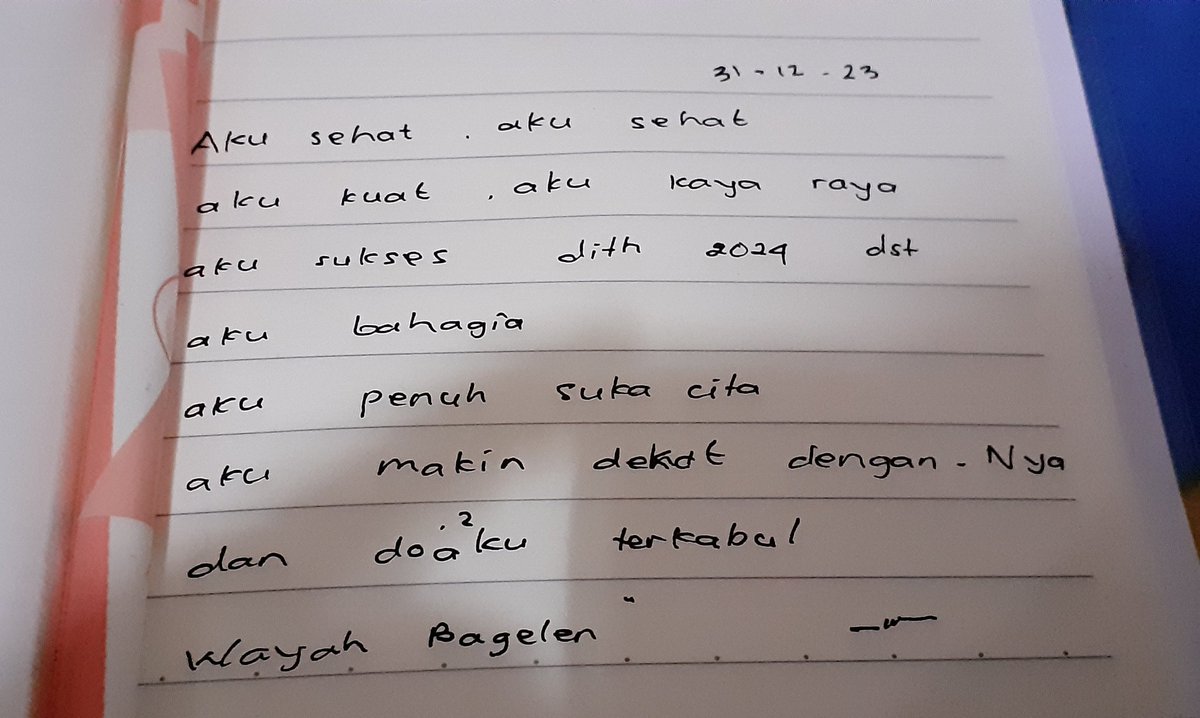 31 - 12 - 23
Aku sehat . aku sehat
aku kuat . aku kaya raya
aku sukses dith 2024 dst
aku bahagia
aku penuh suka cita
aku makin dekat dengan - Nya
dan doa²ku terkabul
Klayah Bagelen "